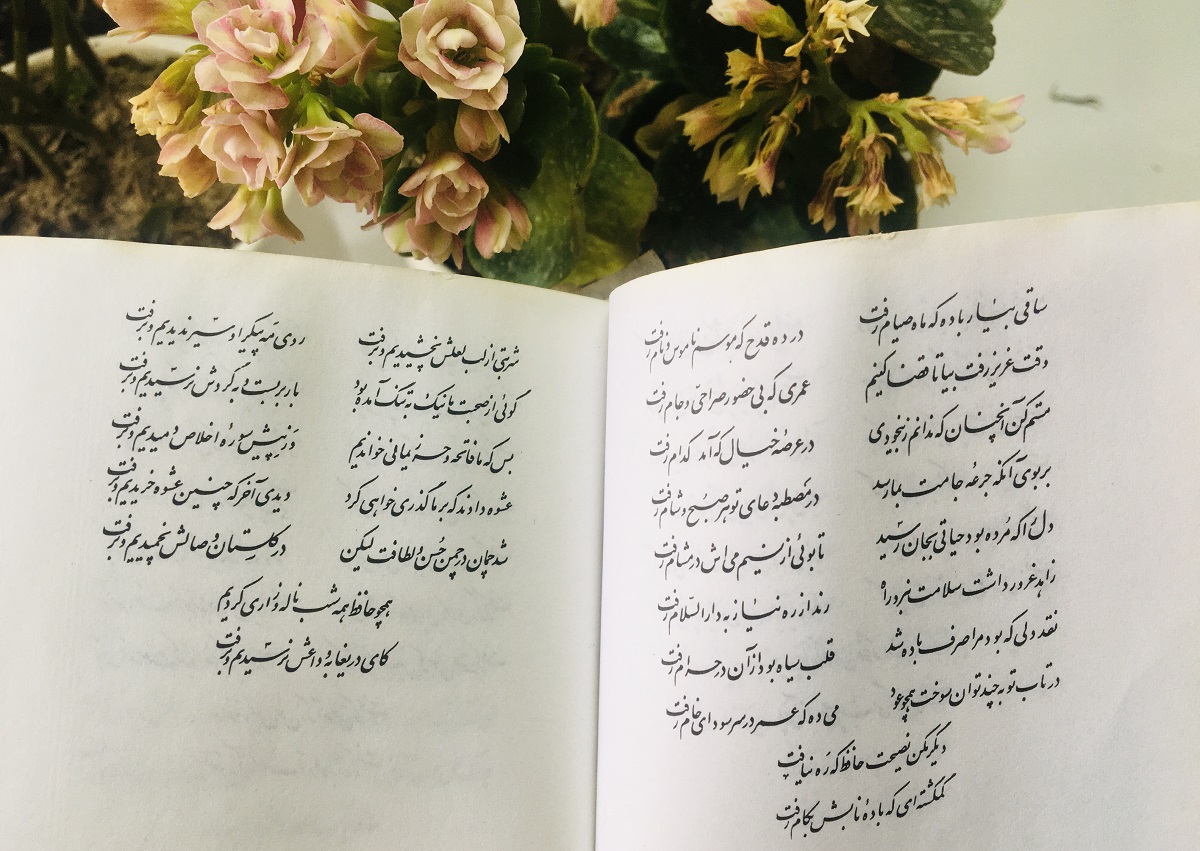 ساقی بیار باده که ماه صیام رفت در ده قدح که موسم ناموس و نام رفت
وقت عزیز رفت بیا تا قضا کنیم عمری که بی حضور صراحی و جام رفت
مستم کن آنچنان که ندانم ز بیخودی در عرصهٔ خیال که آمد کدام رفت
بر بوی آنکه جرعهٔ جامت بما رسد در مصطبه دعای تو هر صبح و شام رفت
دل را که مرده بود حیاتی بجان رسید تا بوئی از نسیم می‌اش در مشام رفت
زاهد غرور داشت سلامت نبرد راه رند از ره نیاز به دارالسلام رفت
نقد دلی که بود مرا صرف باده شد قلب سیاه بود از آن در حرام رفت
در تاب توبه چند توان سوخت همچو عود می ده که عمر در سر سودای خام رفت
دیگر مکن نصیحت حافظ که ره نیافت
گمگشته‌ای که بادهٔ نابش بکام رفت
شربتی از لب لعلش نچشیدیم و برفت روی مه پیکر او سیر ندیدیم و برفت
گوئی از صحبت ما نیک به تنگ آمده بود بار بربست و به گردش نرسیدیم و برفت
بس که ما فاتحه و حرز یمانی خواندیم وز پیش سورهٔ اخلاص دمیدیم و برفت
عشوه دادند که بر ما گذری خواهی کرد دیدی آخر که چنین عشوه خریدیم و برفت
شد چمان در چمن حسن و لطافت لیکن در گلستان وصالش نچمیدیم و برفت
همچو حافظ همه شب ناله و زاری کردیم
کای دریغا به وداعش نرسیدیم و برفت